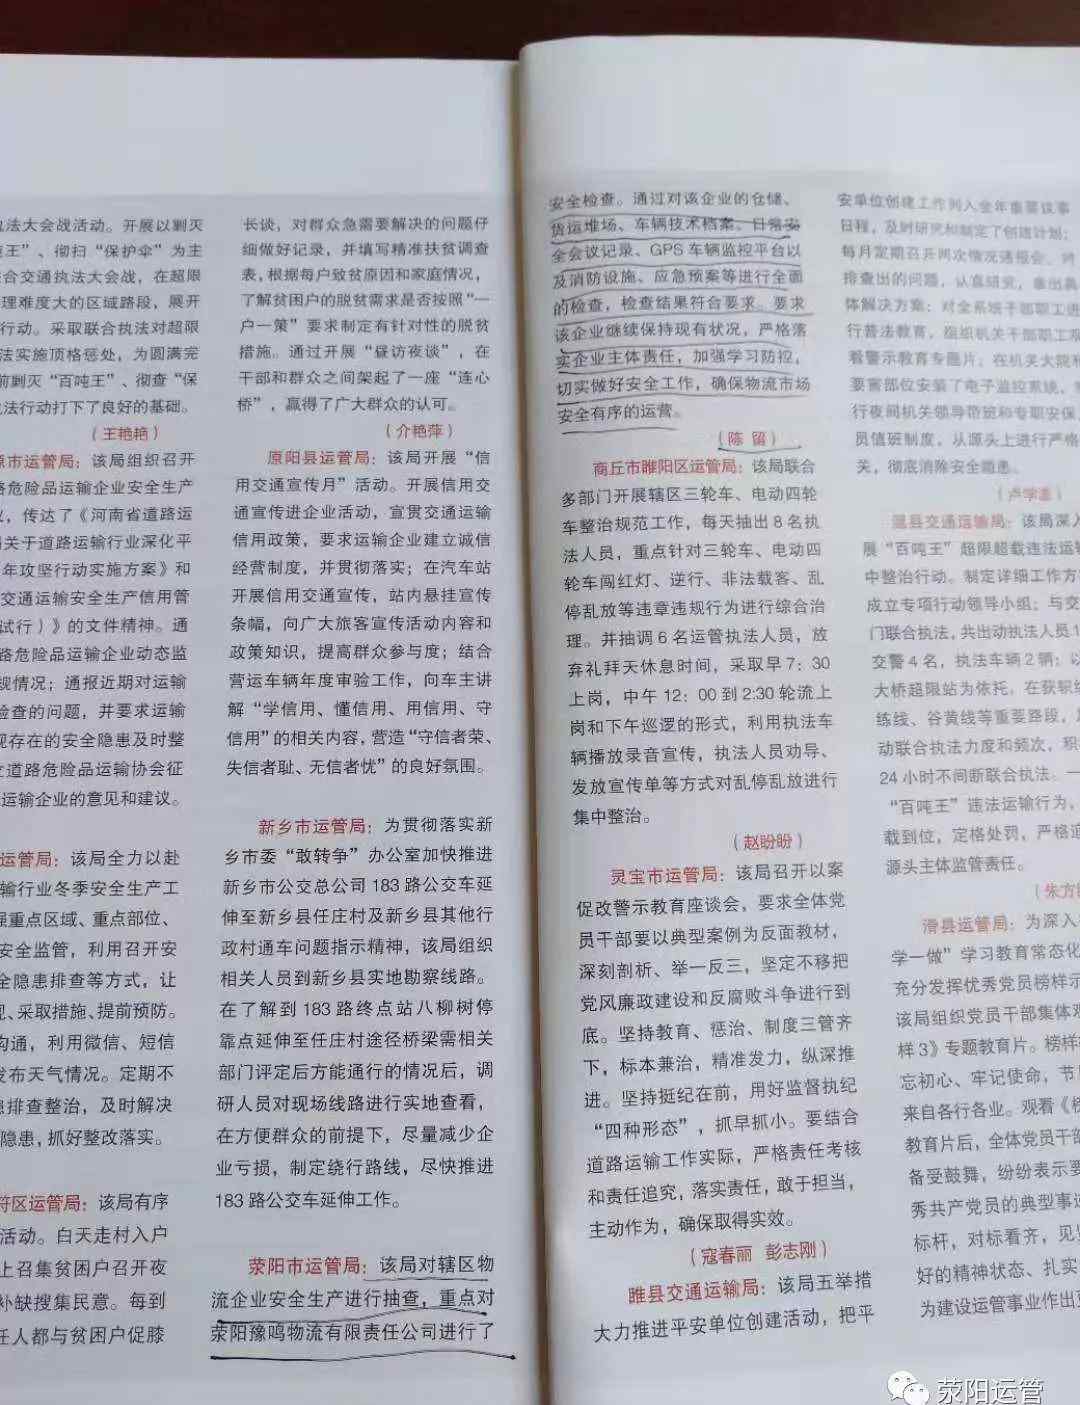 法大会战活动。开展以剿灭
王”、彻扫“保护伞”为主
合交通执法大会战，在超限
理难度大的区域路段，展开
行动。采取联合执法对超限
法实施顶格惩处，为圆满完
前剿灭“百吨王”、彻查“保
法行动打下了良好的基础。
（王艳艳）
原市运管局：该局组织召开
路危险品运输企业安全生产
，传达了《河南省道路运
关于道路运输行业深化平
年攻坚行动实施方案》和
交通运输安全生产信用管
试行）》的文件精神。通
路危险品运输企业动态监
规情况；通报近期对运输
检查的问题，并要求运输
现存在的安全隐患及时整
道路危险品运输协会征
运输企业的意见和建议。
运管局：该局全力以赴
输行业冬季安全生产工
强重点区域、重点部位、
安全监管，利用召开安
全隐患排查等方式，让
、采取措施、提前预防。
沟通，利用微信、短信
发布天气情况。定期不
患排查整治，及时解决
隐患，抓好整改落实。
符区运管局：该局有序
活动。白天走村入户
上召集贫困户召开夜
补缺搜集民意。每到
任人都与贫困户促膝
长谈，对群众急需要解决的问题仔
细做好记录，并填写精准扶贫调查
表，根据每户致贫原因和家庭情况，
了解贫困户的脱贫需求是否按照“一
户一策”要求制定有针对性的脱贫
措施。通过开展“昼访夜谈”，在
干部和群众之间架起了一座“连心
桥”，赢得了广大群众的认可。
（介艳萍）
原阳县运管局：该局开展“信
用交通宣传月”活动。开展信用交
通宣传进企业活动，宣贯交通运输
信用政策，要求运输企业建立诚信
经营制度，并贯彻落实；在汽车站
开展信用交通宣传，站内悬挂宣传
条幅，向广大旅客宣传活动内容和
政策知识，提高群众参与度；结合
营运车辆年度审验工作，向车主讲
解“学信用、懂信用、用信用、守
信用”的相关内容，营造“守信者荣、
失信者耻、无信者忧”的良好氛围。
新乡市运管局：为贯彻落实新
乡市委“敢转争”办公室加快推进
新乡市公交总公司183路公交车延
伸至新乡县任庄村及新乡县其他行
政村通车问题指示精神，该局组织
相关人员到新乡县实地勘察线路。
在了解到183路终点站八柳树停
靠点延伸至任庄村途径桥梁需相关
部门评定后方能通行的情况后，调
研人员对现场线路进行实地查看，
在方便群众的前提下，尽量减少企
业亏损，制定绕行路线，尽快推进
183路公交车延伸工作。
荥阳市运管局：该局对辖区物
流企业安全生产进行抽查，重点对
荥阳豫鸣物流有限责任公司进行了
安全检查。通过对该企业的仓储、
货运堆场、车辆技术档案、日常安
全会议记录、GPS车辆监控平台以
及消防设施、应急预案等进行全面
的检查，检查结果符合要求。要求
该企业继续保持现有状况，严格落
实企业主体责任，加强学习防控，
切实做好安全工作，确保物流市场
安全有序的运营。
（陈 留）
商丘市睢阳区运管局：该局联合
多部门开展辖区三轮车、电动四轮
车整治规范工作，每天抽出8名执
法人员，重点针对三轮车、电动四
轮车闯红灯、逆行、非法载客、乱
停乱放等违章违规行为进行综合治
理。并抽调6名运管执法人员，放
弃礼拜天休息时间，采取早7：30
上岗，中午12：00到2:30轮流上
岗和下午巡逻的形式，利用执法车
辆播放录音宣传，执法人员劝导、
发放宣传单等方式对乱停乱放进行
集中整治。
（赵盼盼）
灵宝市运管局：该局召开以案
促改警示教育座谈会，要求全体党
员干部要以典型案例为反面教材，
深刻剖析、举一反三，坚定不移把
党风廉政建设和反腐败斗争进行到
底。坚持教育、惩治、制度三管齐
下，标本兼治，精准发力，纵深推
进。坚持挺纪在前，用好监督执纪
“四种形态”，抓早抓小。要结合
道路运输工作实际，严格责任考核
和责任追究，落实责任，敢于担当，
主动作为，确保取得实效。
（寇春丽 彭志刚）
睢县交通运输局：该局五举措
大力推进平安单位创建活动，把平
安单位创建工作列入全年重要议事
日程，及时研究和制定了创建计划；
每月定期召开两次情况通报会，对
排查出的问题，认真研究，拿出具
体解决方案；对全系统干部职工进
行普法教育，组织机关干部职工观
看警示教育专题片；在机关大院和
要害部位安装了电子监控系统，
行夜间机关领导带班和专职安保
员值班制度，从源头上进行严格
关，彻底消除安全隐患。
（卢学
温县交通运输局：该局深入
展“百吨王”超限超载违法运输
中整治行动。制定详细工作方
成立专项行动领导小组；与交
门联合执法，共出动执法人员1
交警4名，执法车辆2辆；以
大桥超限站为依托，在获轵
练线、谷黄线等重要路段，
动联合执法力度和频次，积
24小时不间断联合执法。一
“百吨王”违法运输行为，
载到位，定格处罚，严格追
源头主体监管责任。
（朱方
滑县运管局：为深入
学一做”学习教育常态化
充分发挥优秀党员榜样示
该局组织党员干部集体观
样3》专题教育片。榜样
忘初心、牢记使命，节
来自各行各业。观看《榜
教育片后，全体党员干部
备受鼓舞，纷纷表示要
秀共产党员的典型事迹
标杆，对标看齐，见
好的精神状态、扎实
为建设运管事业作出
荥阳运管